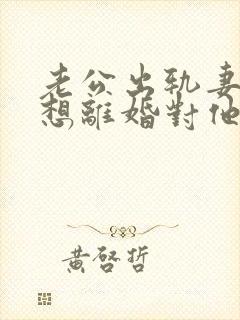 老公出軌妻
想離婚對他
黃啓哲